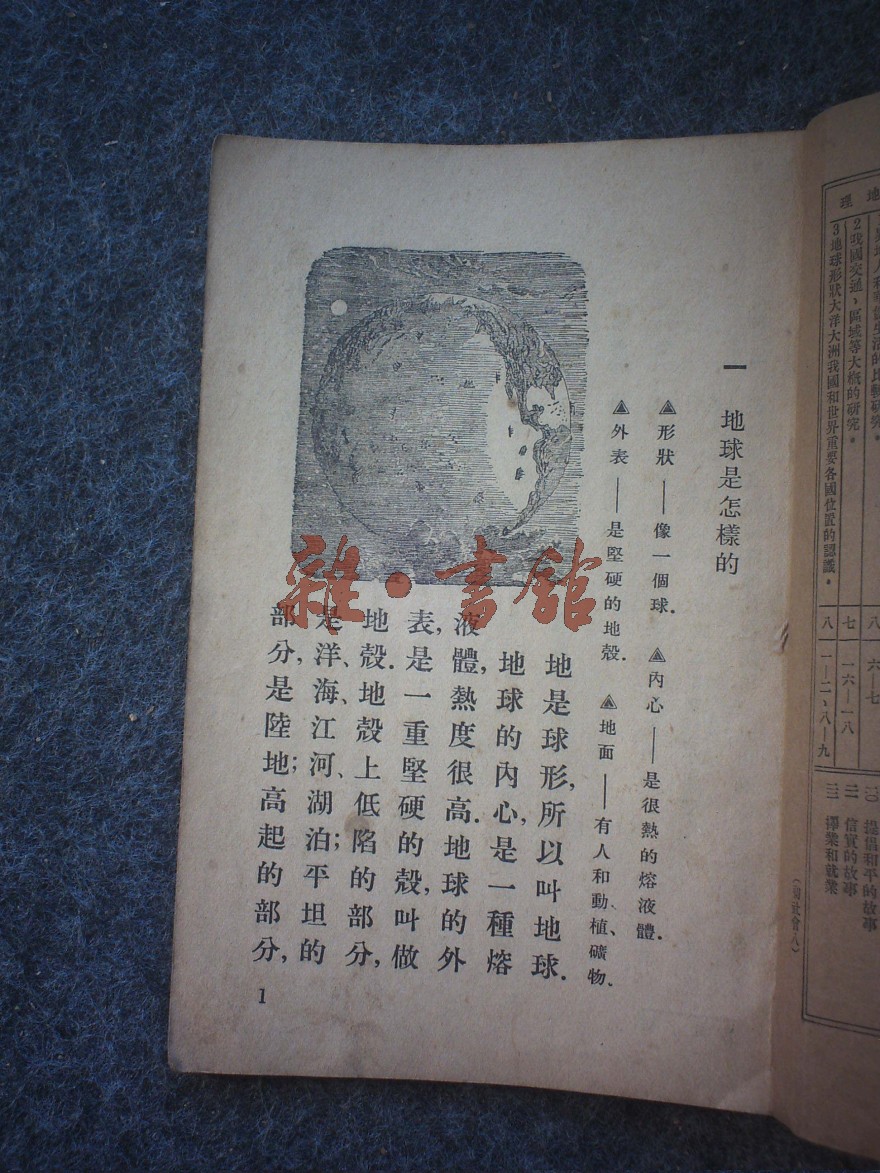 地理
2 我國交通、區域等大概的研究。
七
一六—一八
3 地球形狀大洋大洲我國和世界重要各國位置的認識。
八
一—二、八—九
二〇 提倡和平的故事
二一 信實的故事
二二 擇業和就業
一 地球是怎樣的
▲形狀——像一個球. ▲內心——是很熱的熔液體.
▲外表——是堅硬的地殼. ▲地面——有人和動、植、礦物.
地是球形,所以叫地球.
地球的內心,是一種熔
液體,熱度很高.地球的外
表,是一重堅硬的殼,叫做
地殼.地殼上低陷的部分,
是洋、海、江、河、湖泊;平坦的
部分,是陸地;高起的部分,
1
雜·書館